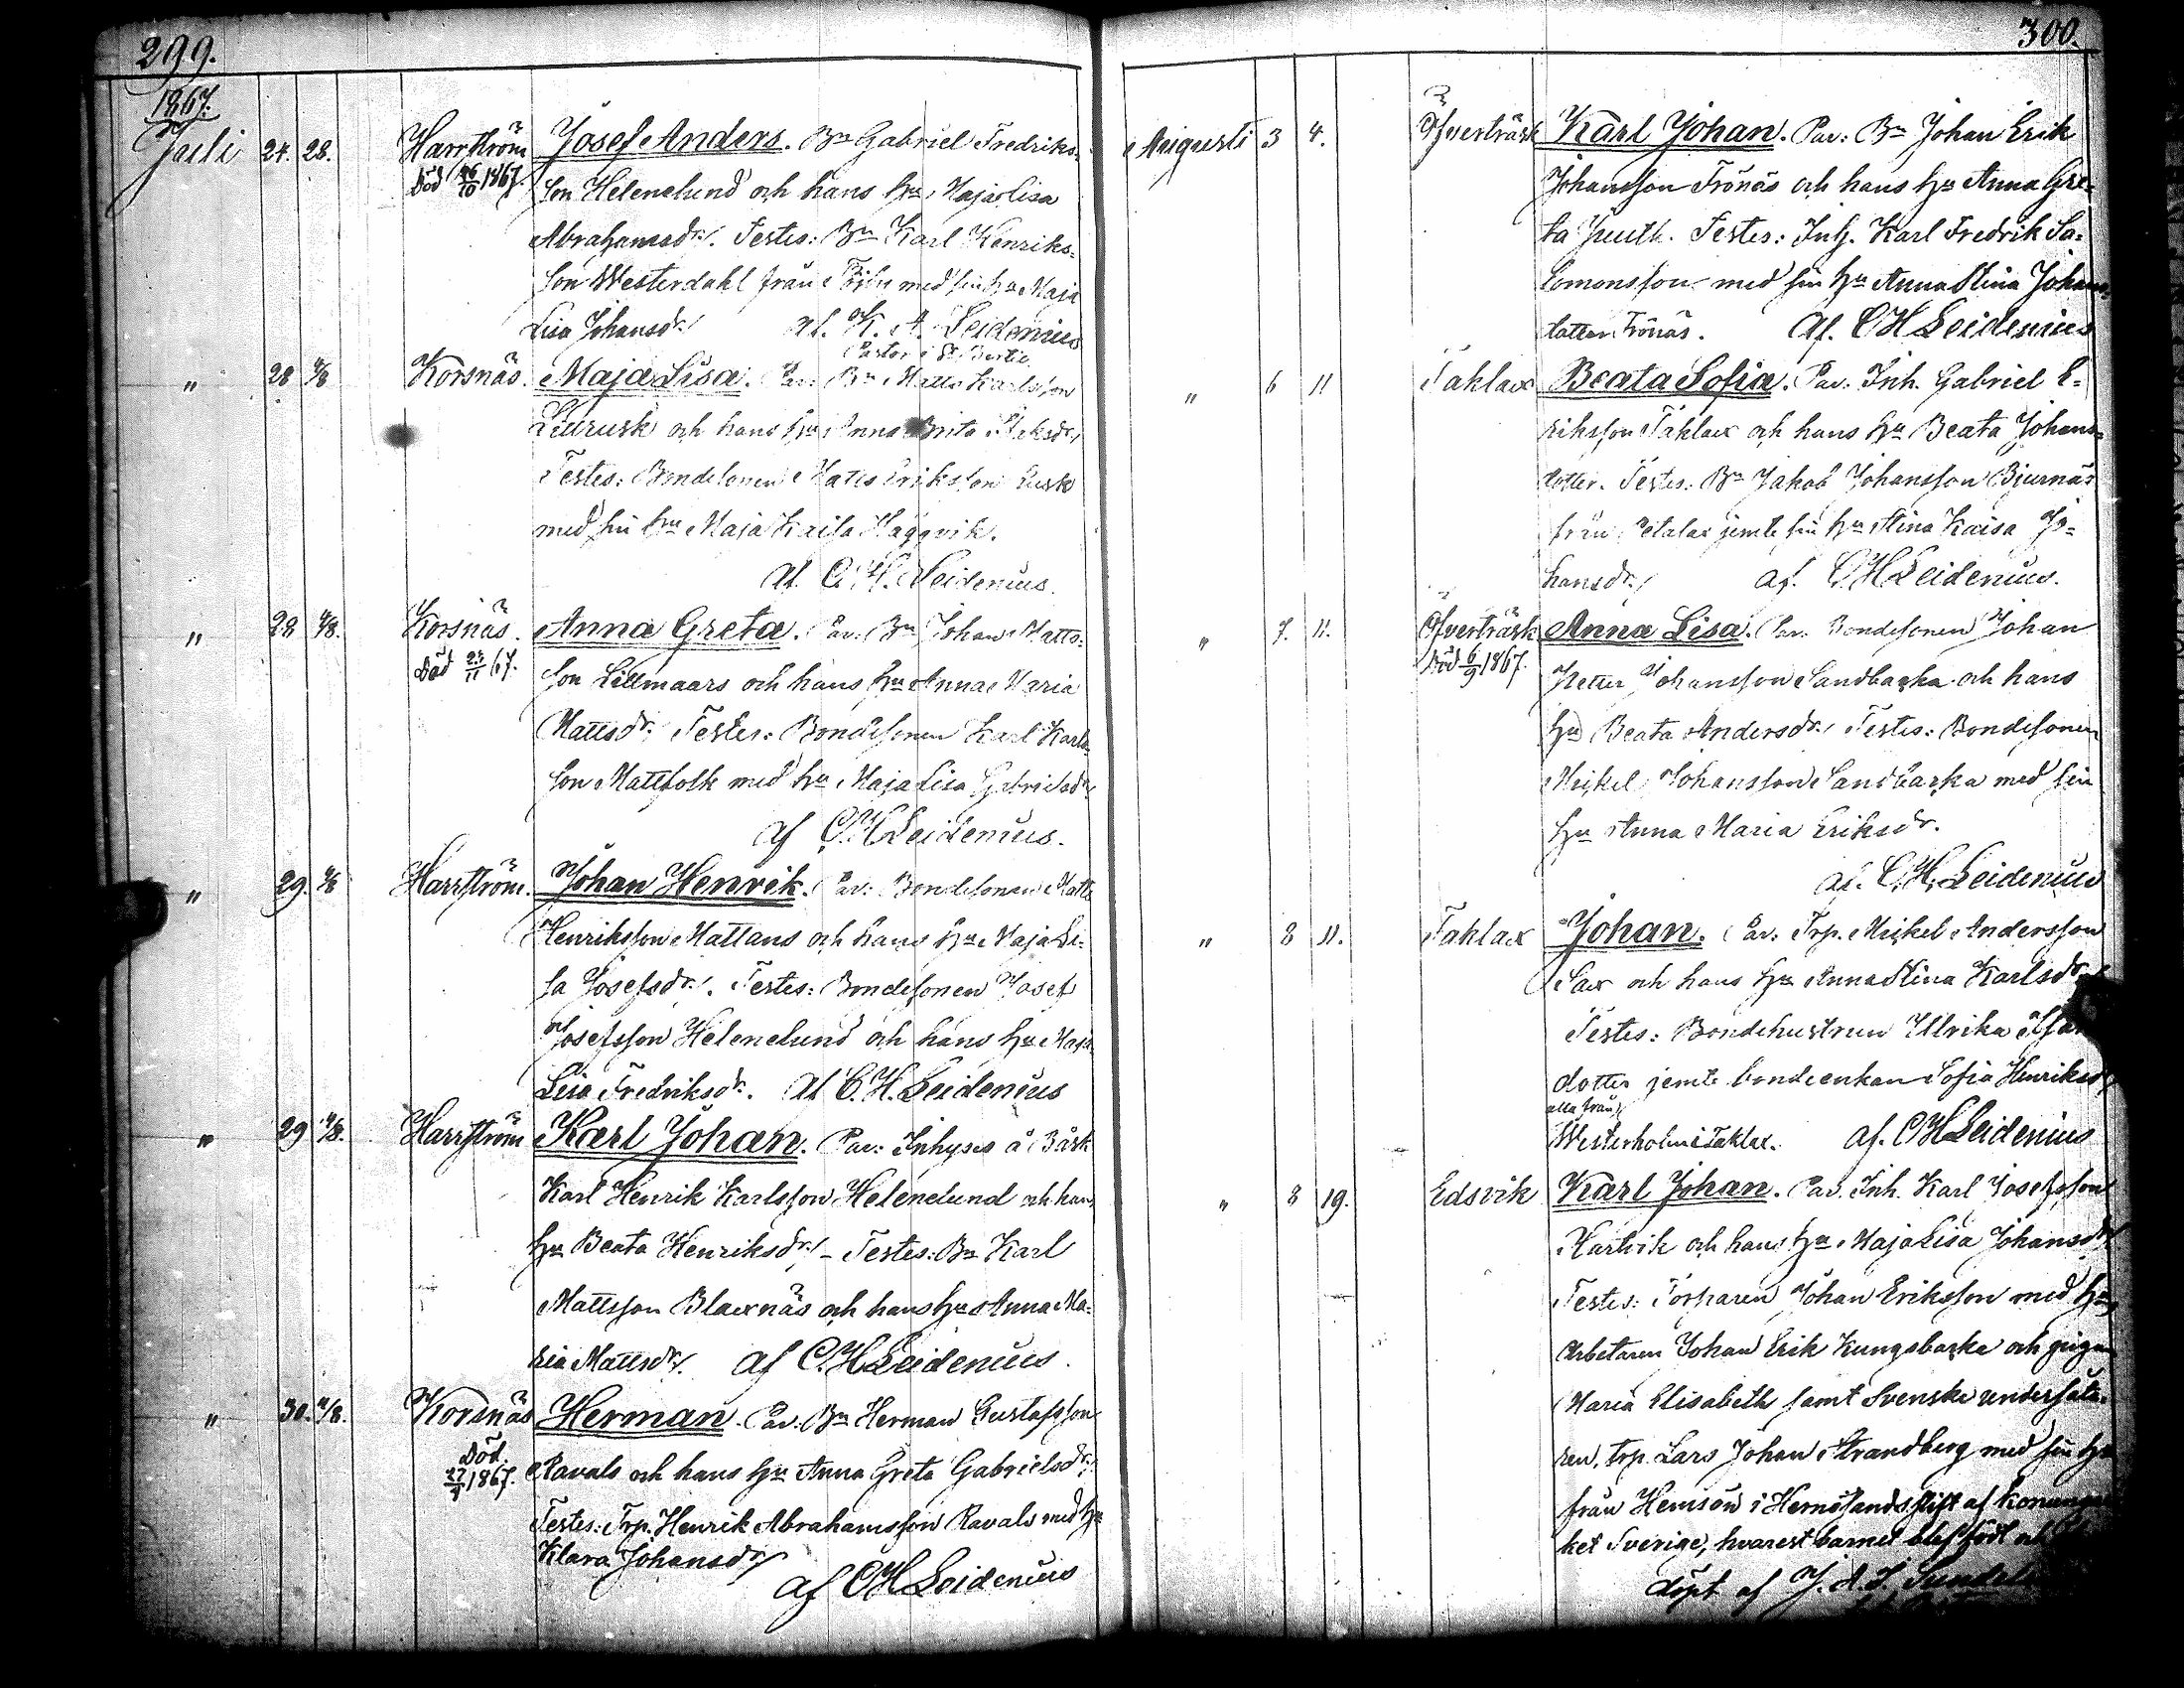 299.
1867.
Juli 24. 28. Harrström Josef Anders. Bn Gabriel Fredriks-
Död 26/10 1867. son Helenelund och hans hu Maja Lisa
Abrahamsdr. Testes: Bn Karl Henriks-
son Westerdahl från med sin hu Maja
Lisa Johansdr. af. K. A. Leidenius
Pastor i
" 28 4/8 Korsnäs. Maja Lisa. Par: Bn Matts Karlsson
och hans hu Anna Brita
Testes: Bondesonen Mats Eriksson Rusk
med sin hu Maja Kaisa Häggvik.
af C. H. Leidenius.
" 28 4/8. Korsnäs. Anna Greta. Par: Bn Johan Matts-
Död 23/11 67. son Lillmaars och hans hu Anna Maria
Mattsdr. Testes: Bondesonen Karl Karls-
son Mattfolk med hu Maja Lisa Gabrielsdr.
af C. H. Leidenius.
" 29. 4/8 Harrström. Johan Henrik. Par: Bondesonen Matts
Henriksson Mattans och hans hu Maja Li-
sa Josefsdr. Testes: Bondesonen Josef
Josefsson Helenelund och hans hu Maja
Lisa Fredriksdr. af C. H. Leidenius
" 29 4/8. Harrström Karl Johan. Par: Inhyses å Bäsk
Karl Henrik Karlsson Helenelund och hans
hu Beata Henriksdr. - Testes: Bn Karl
Mattsson Blaxnäs och hans hu Anna Ma-
ria Mattsdr. af C. H. Leidenius.
" 30. 4/8. Korsnäs Herman. Par: Bn Herman Gustafsson
Död. 27/9 1867. Ravals och hans hu Anna Greta Gabrielsdr.
Testes: Trp. Henrik Abrahamsson Ravals med hu
Klara Johansdr
af C H Leidenius
300.
Augusti 3 4. Öfverträsk Karl Johan. Par: Bn Johan Erik
Johansson Frönäs och hans hu Anna Gre-
ta Juuth. Testes: Inh. Karl Fredrik Sa-
lomonsson med sin hu Anna Stina Johans-
dotter Frönäs. Af. C H Leidenius
" 6 11 Taklax Beata Sofia. Par: Inh. Gabriel E-
riksson Taklax och hans hu Beata Johans-
dotter. Testes: Bn Jakob Johansson Bjurnäs
från Petalax jemte sin hu Stina Kaisa Jo-
hansdr. af. C H Leidenius.
" 7. 11. Öfverträsk Anna Lisa. Par: Bondesonen Johan
Död 6/9 1867. Petter Johansson Sandbacka och hans
hu Beata Andersdr. Testes: Bondesonen
Mickel Johansson Sandbacka med sin
hu Anna Maria Eriksdr.
af. C. H. Leidenius
" 8 11. Taklax Johan. Par: Trp. Mickel Andersson
Sax och hans hu Anna Stina Karlsdr
Testes: Bondehustrun Ullrika
dotter jemte bondeenkan Sofia Henriksdr
alla från
Westerholm i Taklax. af. C H Leidenius
" 8 19. Edsvik Karl Johan. Par. Inh. Karl Josefsson
Hartvik och hans hu Maja Lisa Johansdr
Testes: Torparen Johan Eriksson med hu,
Arbetaren Johan Erik Kungsbacka och pigan
Maria Elisabeth samt Svenske undersåte-
ren, trp. Lars Johan Strandberg med sin hu
från Hemsön i Hernösands stift af Konunga-
ket Sverige, hvarest barnet blef födt
döpt af J. A. J.